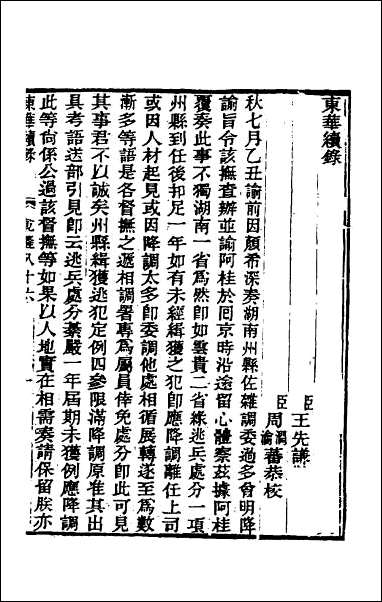 東華續錄
臣王先謙
臣周潤蕃恭校
瀹
秋七月乙丑諭前因顏希深奏湖南州縣佐雜調委過多曾明降
諭旨令該撫查辦並諭阿桂於囘京時沿途留心體察茲據阿桂
覆奏此事不獨湖南一省爲然卽如雲貴二省緣逃兵處分一項
州縣到任後扣足一年如有未經緝獲之犯卽應降調離任上司
或因人材起見或因降調太多卽委調他處相循展轉遂至爲數
漸多等語是各督撫之遞相調署專爲屬員倖免處分卽此可見
其事君不以誠矣州縣緝獲逃犯定例四參限滿降調原准其出
具考語送部引見卽云逃兵處分綦嚴一年屆期未獲例應降調
此等尙係公過該督撫等如果以人地實在相需奏請保留朕亦
東華續錄 乾隆八十六 一